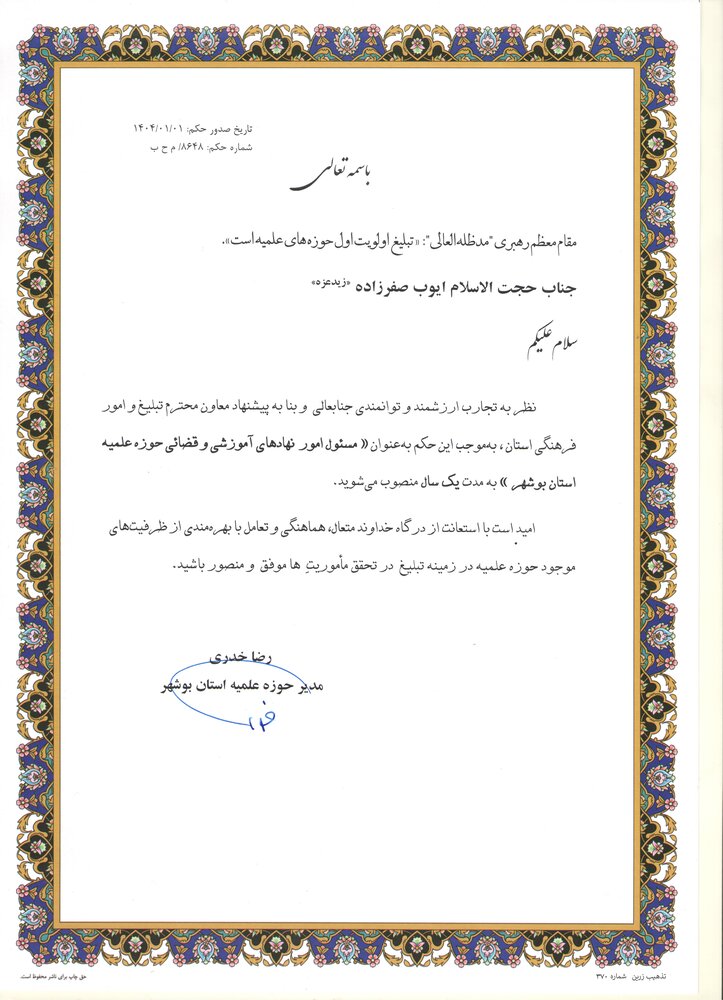 تاریخ صدور حکم: ۱۴۰۴/۰۱/۰۱
شماره حکم: ۸۶۴۸/ م ح ب
باسمه تعالی
مقام معظم رهبری "مدظله العالی": «تبلیغ اولویت اول حوزه های علمیه است».
جناب حجت الاسلام ایوب صفرزاده «زیدعزه»
سلام علیکم
نظر به تجارب ارزشمند و توانمندی جنابعالی و بنا به پیشنهاد معاون محترم تبلیغ و امور
فرهنگی استان، به‌موجب این حکم به‌عنوان « مسئول امور نهادهای آموزشی و قضائی حوزه علمیه
استان بوشهر » به مدت یک سال منصوب می‌شوید.
امید است با استعانت از درگاه خداوند متعال، هماهنگی و تعامل با بهره‌مندی از ظرفیت‌های
موجود حوزه علمیه در زمینه تبلیغ در تحقق مأموریت ها موفق و منصور باشید.
رضا خدری
مدیر حوزه علمیه استان بوشهر
تذهیب زرین شماره ۳۷۰
حق چاپ برای ناشر محفوظ است.